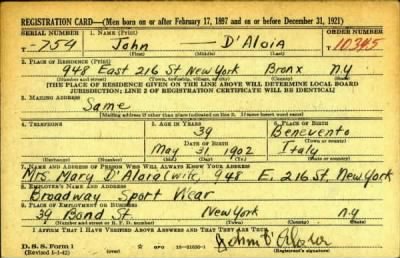 REGISTRATION CARD—(Men born on or after February 17, 1897 and on or before December 31, 1921)
SERIAL NUMBER 1. NAME (Print) ORDER NUMBER
T-754 John D'Aloia 10345
(First) (Middle) (Last)
2. PLACE OF RESIDENCE (Print)
948 East 216 St New York Bronx N.Y
(Number and street) (Town, township, village, or city) (County) (State)
[THE PLACE OF RESIDENCE GIVEN ON THE LINE ABOVE WILL DETERMINE LOCAL BOARD
JURISDICTION; LINE 2 OF REGISTRATION CERTIFICATE WILL BE IDENTICAL]
3. MAILING ADDRESS
Same
[Mailing address if other than place indicated on line 2. If same insert word same]
4. TELEPHONE 5. AGE IN YEARS 6. PLACE OF BIRTH
39 Benevento
DATE OF BIRTH (Town or county)
May 31 1902 Italy
(Mo.) (Day) (Yr.) (State or country)
7. NAME AND ADDRESS OF PERSON WHO WILL ALWAYS KNOW YOUR ADDRESS
Mrs. Mary D'Aloia (wife) 948 E. 216 St. New York
8. EMPLOYER'S NAME AND ADDRESS
Broadway Sport Wear
9. PLACE OF EMPLOYMENT OR BUSINESS
39 Bond St. New York N.Y
(Number and street or R. F. D. number) (Town) (County) (State)
I AFFIRM THAT I HAVE VERIFIED ABOVE ANSWERS AND THAT THEY ARE TRUE.
D. S. S. Form 1
(Revised 1-1-42) GPO 16—21630-1 John D'Aloia
(Registrant's signature)